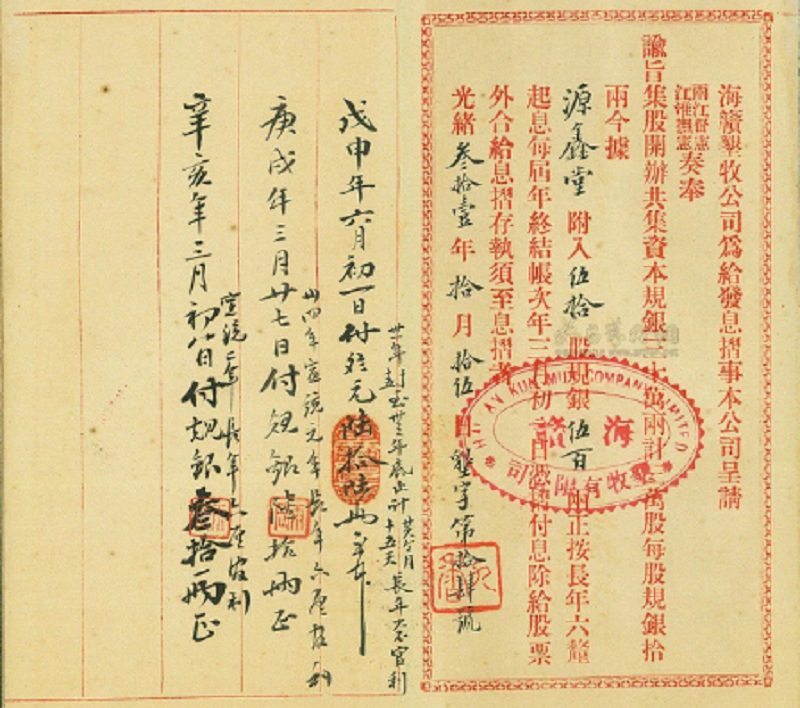 海贛墾牧公司爲給發息摺事本公司呈請
兩江督憲
江淮撫憲
奏奉
諭旨集股開辦共集資本規銀二十萬兩計二萬股每股規銀拾
兩今據
源鑫堂 附入伍拾股規銀伍百兩正按長年六釐
起息每屆年終結帳次年三月初一日憑摺付息除給股票
外合給息摺存執須至息摺者
光緒叁拾壹年拾月拾伍日墾字第拾肆號
HAI AN KUNG MUH COMPANY LIMITED
海贛
墾牧有限公司
戊申年六月初一日付 元陸拾陸兩
長年 官利
庚戌年三月廿七日付規銀陸拾兩正
卅四年宣統元年長年六厘官利
辛亥年三月初八日付規銀叁拾兩正
宣統二年長年六厘官利